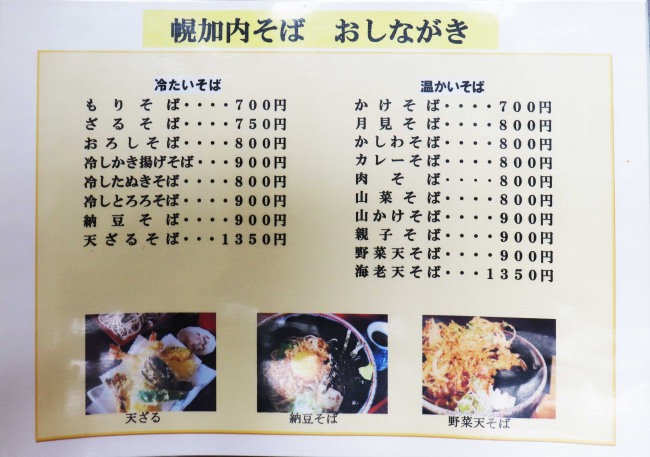 幌加内そば　おしながき
冷たいそば
もりそば・・・・７００円
ざるそば・・・・７５０円
おろしそば・・・・８００円
冷しかき揚げそば・・・９００円
冷したぬきそば・・・・８００円
冷しとろろそば・・・・９００円
納豆そば・・・・９００円
天ざるそば・・・１３５０円
温かいそば
かけそば・・・・７００円
月見そば・・・・８００円
かしわそば・・・・８００円
カレーそば・・・・８００円
肉そば・・・・８００円
山菜そば・・・・８００円
山かけそば・・・・９００円
親子そば・・・・９００円
野菜天そば・・・・９００円
海老天そば・・・１３５０円
天ざる
納豆そば
野菜天そば